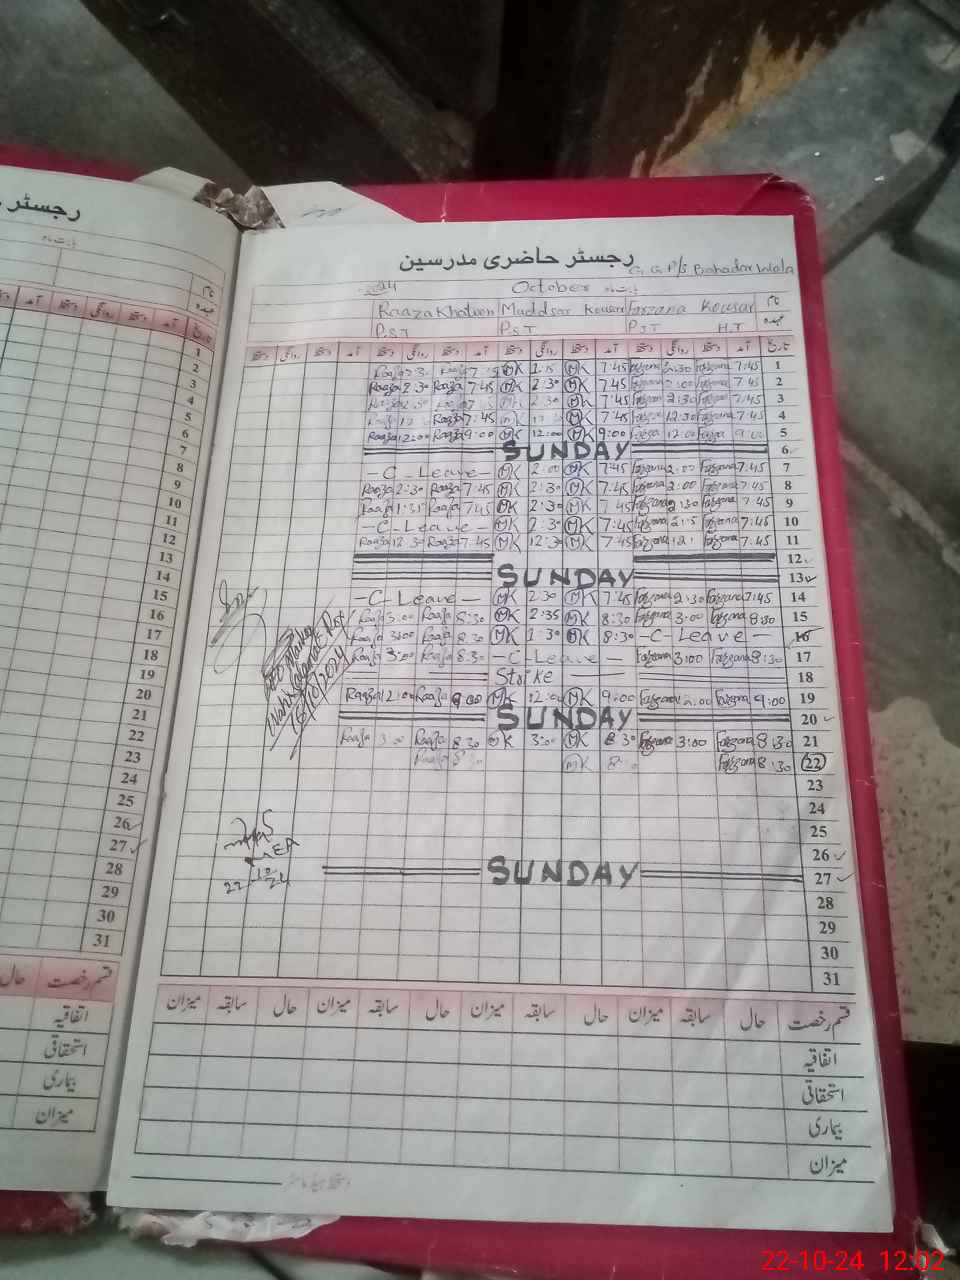 رجسٹر حاضری مدرسین
G.G.P/S Bahadar Wala
2024 October بابت ماہ
Raaza Khatoon Muddsar Kousar Farzana Kousar نام
P.S.T P.S.T P.S.T H.T عہدہ
دستخط روانگی دستخط آمد دستخط روانگی دستخط آمد دستخط روانگی دستخط آمد دستخط روانگی دستخط آمد تاریخ
MK MK 7:45 2:30 7:45 1
Raaza 2:30 Raaza 7:45 MK 2:30 MK 7:45 7:45 2
MK 2:30 MK 7:45 2:30 7:45 3
Raaza 7:45 MK MK 7:45 12:30 7:45 4
Raaza 12:00 Raaza 9:00 MK 12:00 MK 9:00 12:00 9:00 5
SUNDAY 6
- C - Leave - MK 2:00 MK 7:45 Farzana 2:00 Farzana 7:45 7
Raaza 2:30 Raaza 7:45 MK 2:30 MK 7:45 Farzana 2:00 Farzana 7:45 8
Raaza Raaza 7:45 MK 2:30 MK 7:45 Farzana 2:30 Farzana 7:45 9
- C - Leave - MK 2:30 MK 7:45 Farzana Farzana 7:45 10
Raaza 12:30 Raaza 7:45 MK 12:30 MK 7:45 Farzana Farzana 7:45 11
12
SUNDAY 13
- C - Leave - MK 2:30 MK 7:45 Farzana 2:30 Farzana 7:45 14
Raaza 3:00 Raaza 8:30 MK 2:35 MK 8:30 Farzana 3:00 Farzana 8:30 15
Raaza 3:00 Raaza 8:30 MK MK 8:30 - C - Leave - 16
Raaza 3:00 Raaza 8:30 - C - Leave - Farzana 3:00 Farzana 8:30 17
Strike 18
Raaza 12:00 Raaza 9:00 MK 12:00 MK 9:00 Farzana 12:00 Farzana 9:00 19
SUNDAY 20
Raaza 3:00 Raaza 8:30 MK 3:00 MK 8:30 Farzana 3:00 Farzana 8:30 21
Raaza 8:30 MK Farzana 8:30 22
23
24
25
26
SUNDAY 27
28
29
30
31
16/10/2024
MEA
22/10/24
میزان سابقہ حال میزان سابقہ حال میزان سابقہ حال میزان سابقہ حال قسم رخصت
اتفاقیہ
استحقاقی
بیماری
میزان
دستخط ہیڈ ماسٹر
رجسٹر
بابت ماہ
نام
عہدہ
آمد دستخط روانگی دستخط آمد تاریخ
1
2
3
4
5
6
7
8
9
10
11
12
13
14
15
16
17
18
19
20
21
22
23
24
25
26
27
28
29
30
31
حال قسم رخصت
اتفاقیہ
استحقاقی
بیماری
میزان
22-10-24 12:02